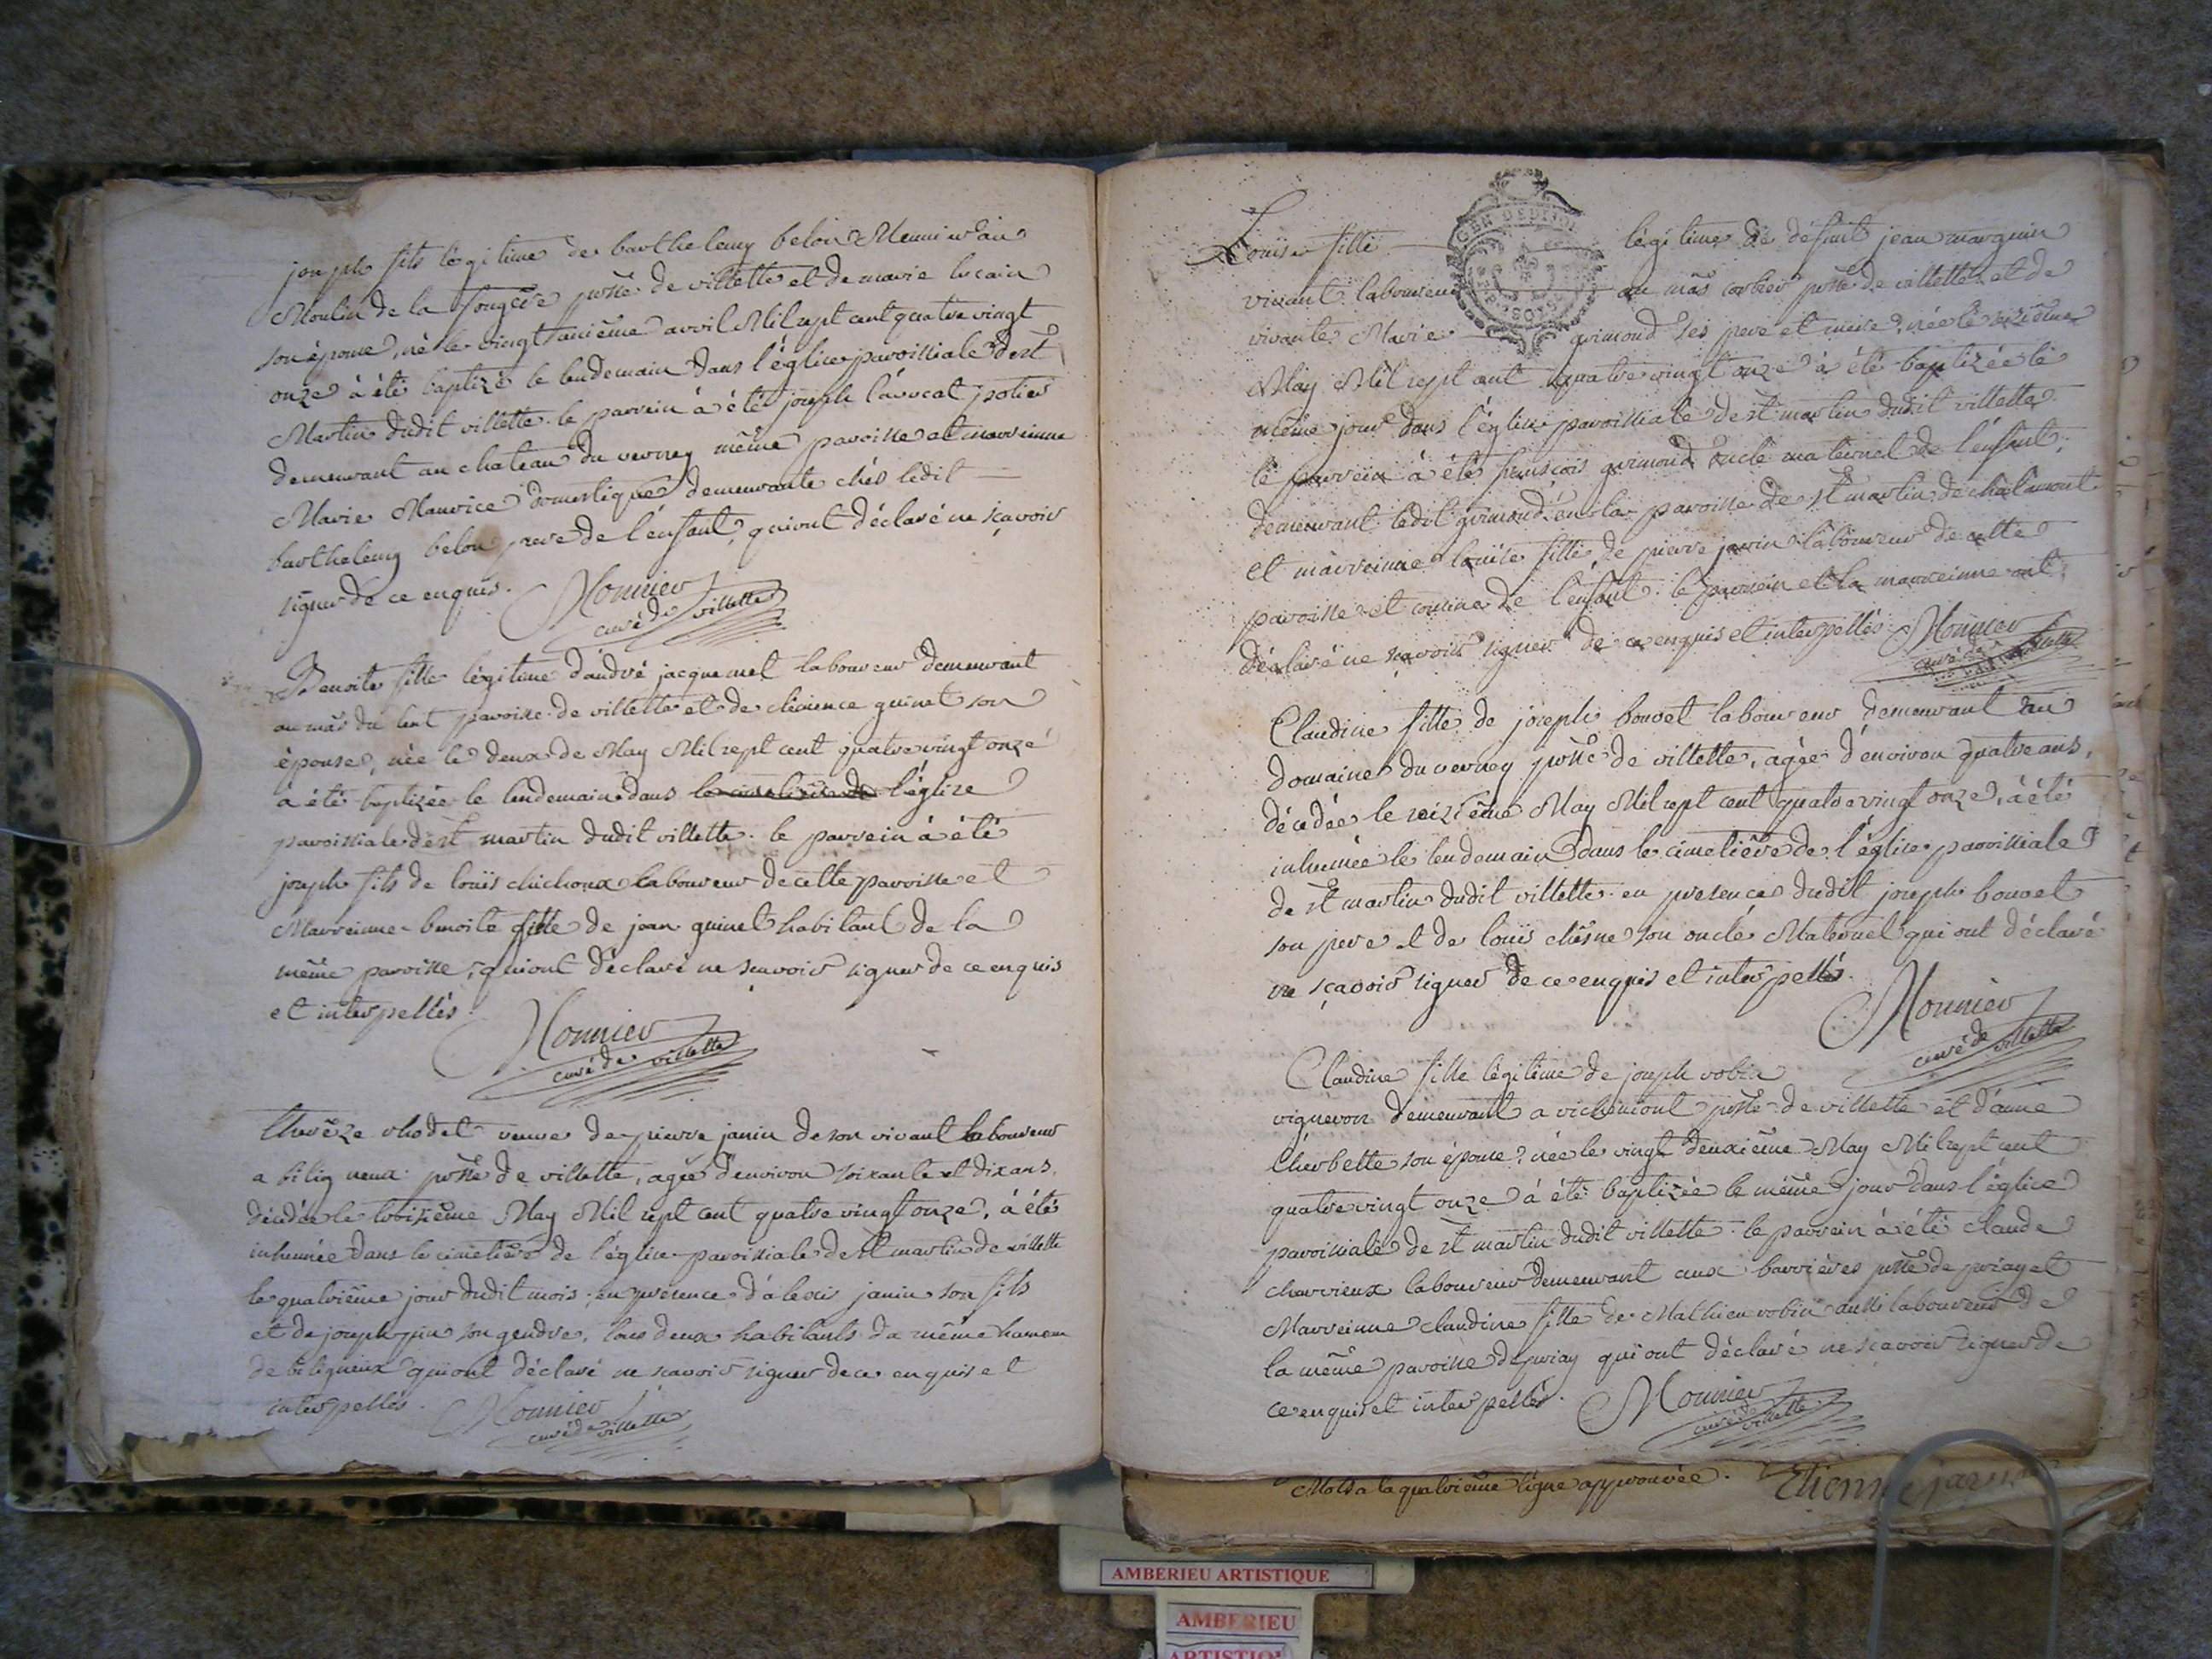 joseph fils légitime de barthelemy belon Meunier au
Moulin de la fougère psse de villette et de marie lucain
son épouse, né le vingt unième avril Mil sept cent quatre vingt
onze à été baptizé le lendemain dans l'église paroissiale de st
Martin dudit villette. le parrein à été joseph l'avocat potier
demeurant au chateau du verney même paroisse et marreinne
Marie Maurice domestique demeurante chés ledit
barthelemy belon pere de l'enfant, qui ont déclaré ne sçavoir
signer de ce enquis. Monnier
curé de villette
Benoite fille légitime d'andré jacquemet laboureur demeurant
au mas du lent paroisse de villette et de clémence guinet son
épouse, née le deux de May Mil sept cent quatre vingt onze
à été baptizée le lendemain dans le cimetière de l'église
paroissiale de st martin dudit villette. le parrein à été
joseph fils de loüis chichoux laboureur de cette paroisse et
Marreinne benoite fille de jean guinet habitant de la
même paroisse, qui ont déclaré ne scavoir signer de ce enquis
et interpellés. Monnier
curé de villette
thereze rhodet veuve de pierre janin de son vivant laboureur
a biligneux psse de villette, agée d'environ soixante et dix ans,
décédée le troisième May Mil sept cent quatre vingt onze, à été
inhumée dans le cimetière de l'église paroissiale de st martin de villette
le quatrième jour dudit mois, en présence d'alexis janin son fils
et de joseph son gendre, tous deux habitants du même hameau
de biligneux qui ont déclaré ne scavoir signer de ce enquis et
interpellés. Monnier
curé de villette
Loüise fille légitime de défunt jean marguin
vivant laboureur au mas corbier psse de villette et de
vivante Marie grimond ses pere et mere, née le seizième
May Mil sept cent quatre vingt onze à été baptizée le
même jour dans l'église paroissiale de st martin dudit villette
le parrein à été françois grimond oncle maternel de l'enfant,
demeurant ledit grimond en la paroisse de st martin de chalamont
et marreinne loüise fille de pierre janin laboureur de cette
paroisse et cousine de l'enfant. le parrein et la marreinne ont
déclaré ne sçavoir signer de ce enquis et interpellés. Monnier
curé de villette
Claudine fille de joseph bouvet laboureur demeurant au
domaine du verney psse de villette, agée d'environ quatre ans,
décédée le seizième May Mil sept cent quatre vingt onze, à été
inhumée le lendemain dans le cimetière de l'église paroissiale
de st martin dudit villette en presence dudit joseph bouvet
son pere et de loüis chêsne son oncle Maternel qui ont déclaré
ne sçavoir signer de ce enquis et interpellés.
Monnier
curé de villette
Claudine fille légitime de joseph robin
vigneron demeurant a richemont psse de villette et d'anne
cherbette son épouse, née le vingt deuxième May Mil sept cent
quatre vingt onze à été baptizée le même jour dans l'église
paroissiale de st martin dudit villette. le parrein à été claude
charvieux laboureur demeurant aux barrières psse de priay et
Marreinne claudine fille de Mathieu robin aussi laboureur de
la même paroisse de priay qui ont déclaré ne sçavoir signer de
ce enquis et interpellés. Monnier
curé de villette
à la quatrième ligne approuvée. Etienne
AMBERIEU ARTISTIQUE
AMBERIEU
ARTISTIQ